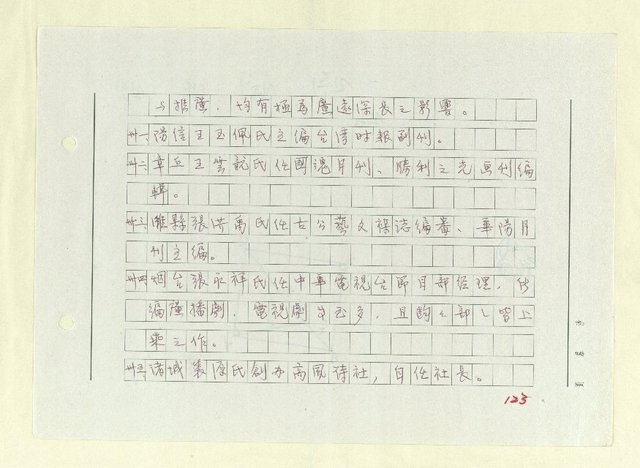 与推廣，均有極為廣遠深長之影響。
卅一、陽信王玉佩氏主編台湾时報副刊。
卅二、章丘王雲龍氏任國魂月刊、勝利之光画刊編
輯。
卅三、濰縣張洪禹氏任古今藝文襍誌編纂、華陽月
刊主編。
卅四、烟台張永祥氏任中華電視台節目部經理，所
編廣播劇、電視劇本至多，且部部皆上
乘之作。
卅五、诸城裴源氏創办高風诗社，自任社長。
123